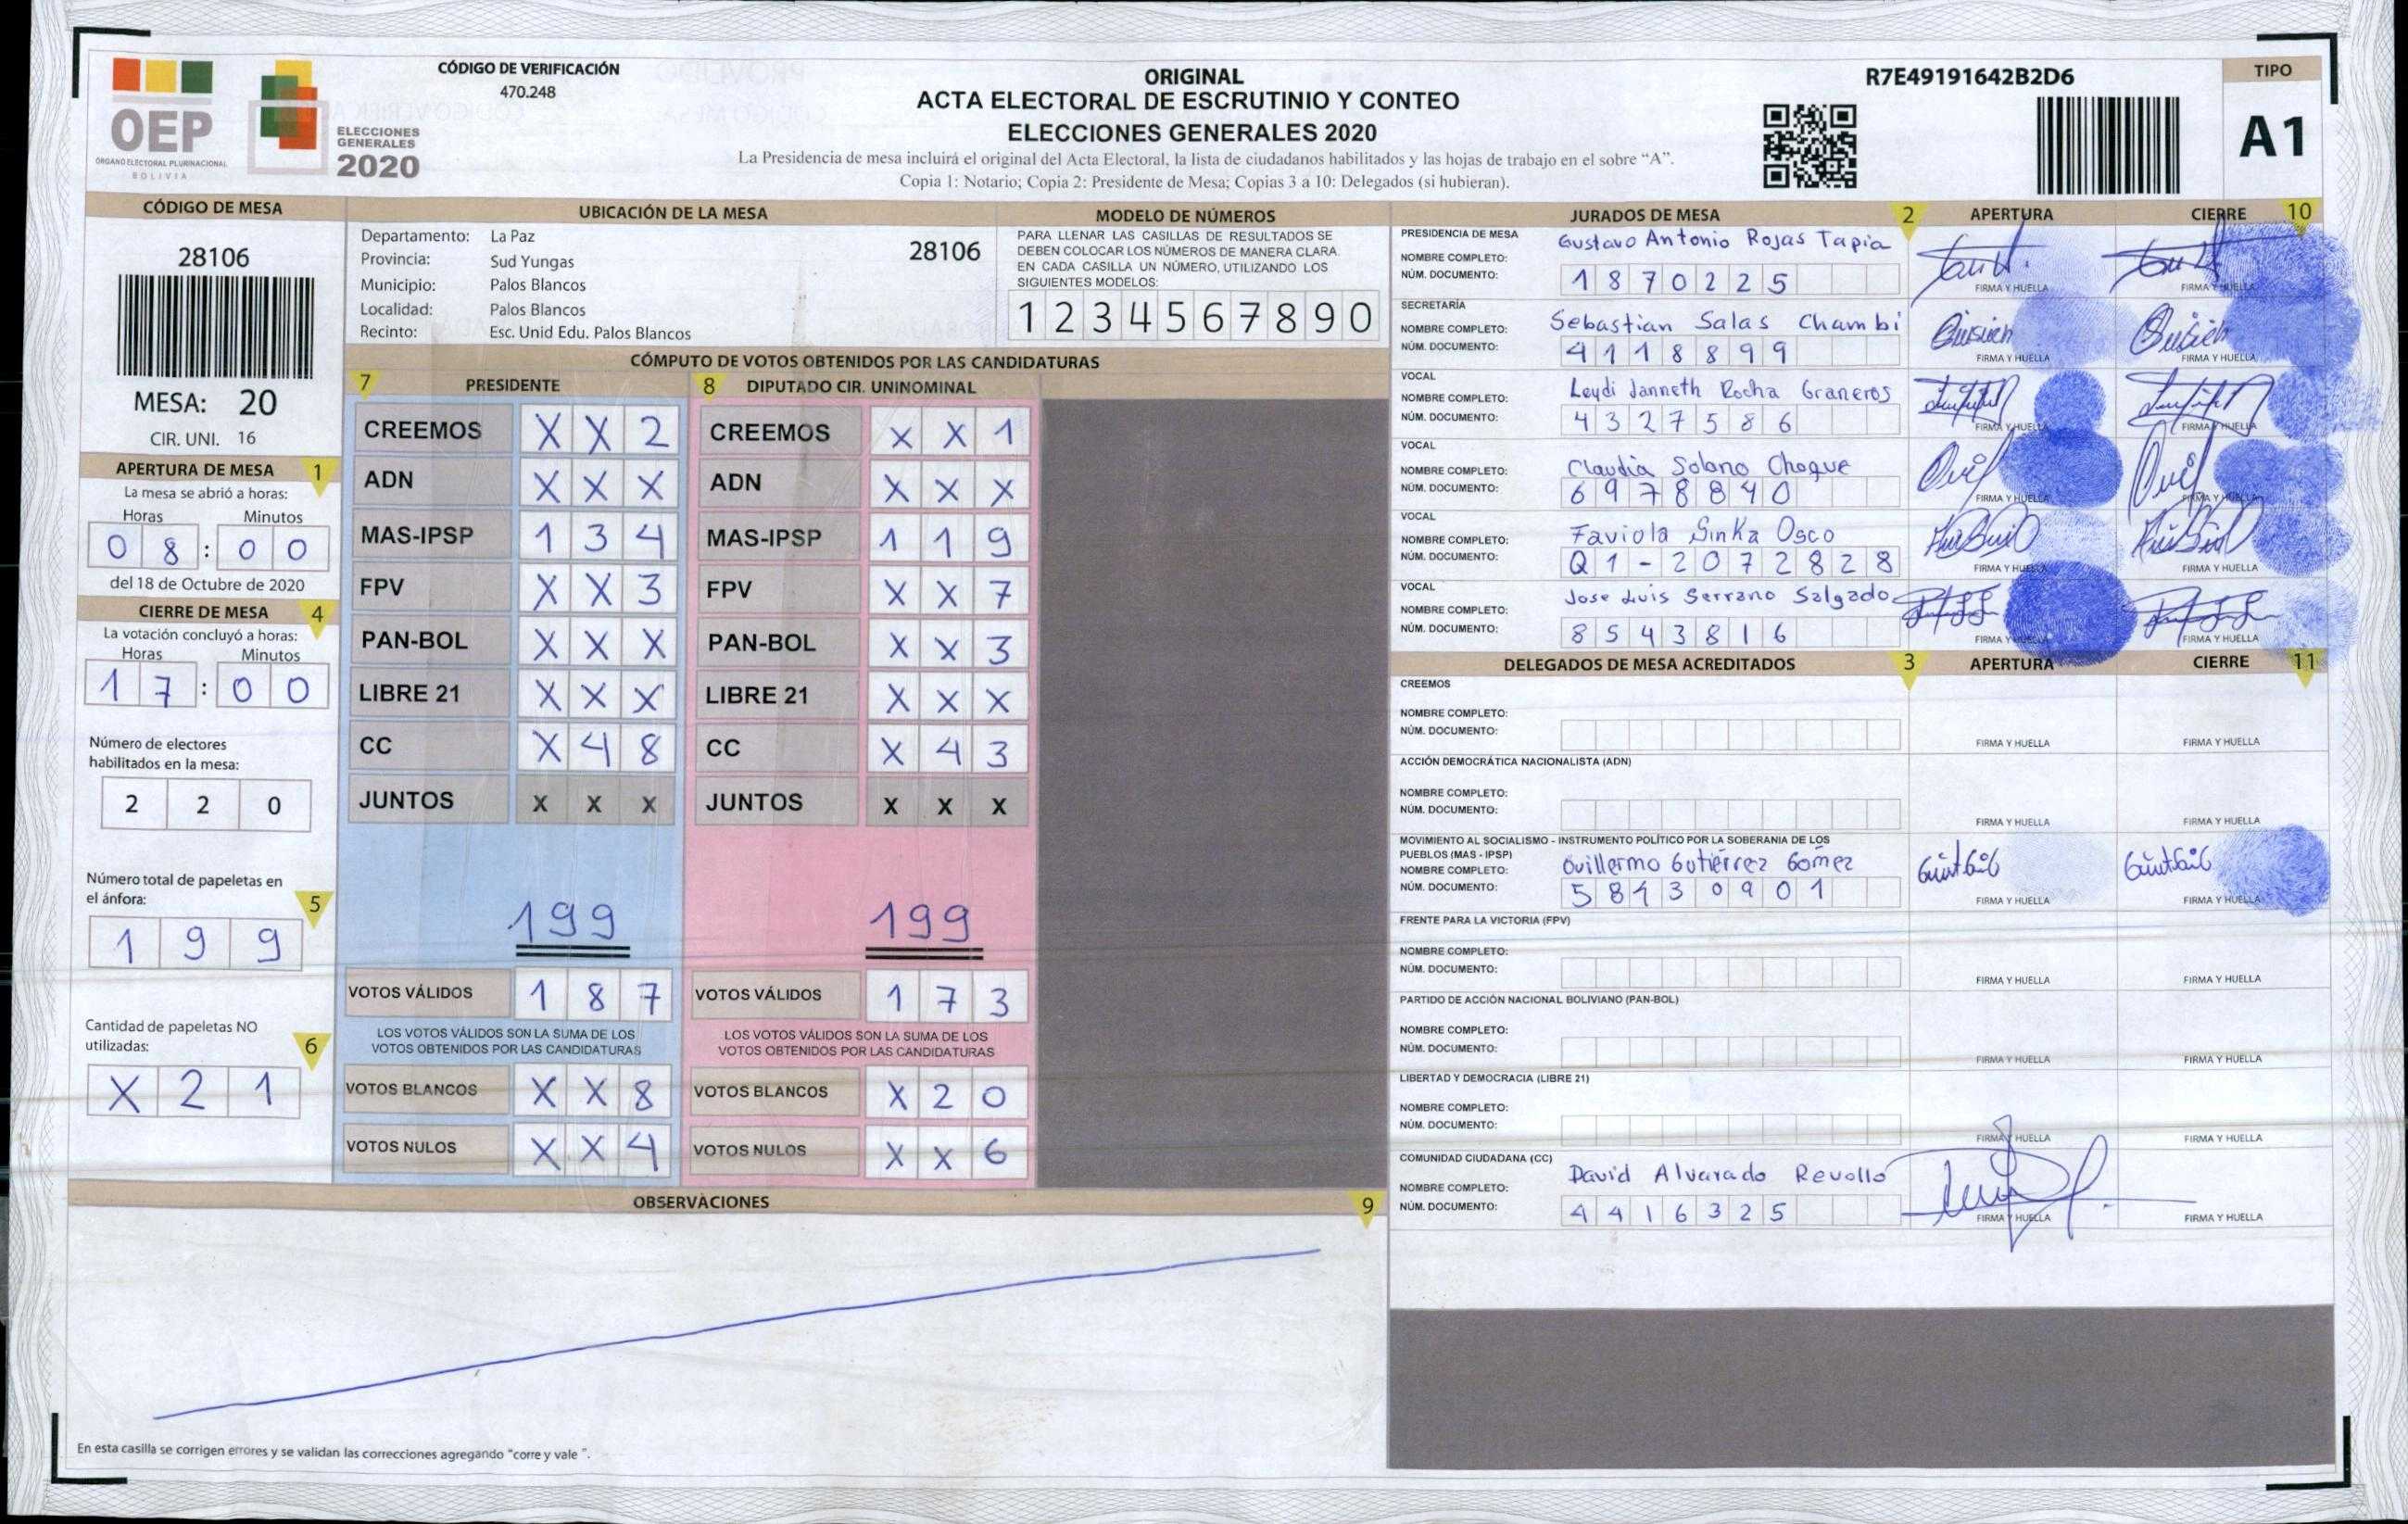 OEP
ÓRGANO ELECTORAL PLURINACIONAL
BOLIVIA
ELECCIONES
GENERALES
2020
CÓDIGO DE VERIFICACIÓN
470.248
ORIGINAL
ACTA ELECTORAL DE ESCRUTINIO Y CONTEO
ELECCIONES GENERALES 2020
La Presidencia de mesa incluirá el original del Acta Electoral, la lista de ciudadanos habilitados y las hojas de trabajo en el sobre “A”.
Copia 1: Notario; Copia 2: Presidente de Mesa; Copias 3 a 10: Delegados (si hubieran).
R7E49191642B2D6
TIPO
A1
CÓDIGO DE MESA
28106
MESA: 20
CIR. UNI. 16
APERTURA DE MESA 1
La mesa se abrió a horas:
Horas Minutos
0 8 : 0 0
del 18 de Octubre de 2020
CIERRE DE MESA 4
La votación concluyó a horas:
Horas Minutos
1 7 : 0 0
Número de electores
habilitados en la mesa:
2 2 0
Número total de papeletas en
el ánfora: 5
1 9 9
Cantidad de papeletas NO
utilizadas: 6
X 2 1
UBICACIÓN DE LA MESA
Departamento: La Paz 28106
Provincia: Sud Yungas
Municipio: Palos Blancos
Localidad: Palos Blancos
Recinto: Esc. Unid Edu. Palos Blancos
MODELO DE NÚMEROS
PARA LLENAR LAS CASILLAS DE RESULTADOS SE
DEBEN COLOCAR LOS NÚMEROS DE MANERA CLARA.
EN CADA CASILLA UN NÚMERO, UTILIZANDO LOS
SIGUIENTES MODELOS:
1 2 3 4 5 6 7 8 9 0
CÓMPUTO DE VOTOS OBTENIDOS POR LAS CANDIDATURAS
7 PRESIDENTE
CREEMOS X X 2
ADN X X X
MAS-IPSP 1 3 4
FPV X X 3
PAN-BOL X X X
LIBRE 21 X X X
CC X 4 8
JUNTOS X X X
199
VOTOS VÁLIDOS 1 8 7
LOS VOTOS VÁLIDOS SON LA SUMA DE LOS
VOTOS OBTENIDOS POR LAS CANDIDATURAS
VOTOS BLANCOS X X 8
VOTOS NULOS X X 4
8 DIPUTADO CIR. UNINOMINAL
CREEMOS X X 1
ADN X X X
MAS-IPSP 1 1 9
FPV X X 7
PAN-BOL X X 3
LIBRE 21 X X X
CC X 4 3
JUNTOS X X X
199
VOTOS VÁLIDOS 1 7 3
LOS VOTOS VÁLIDOS SON LA SUMA DE LOS
VOTOS OBTENIDOS POR LAS CANDIDATURAS
VOTOS BLANCOS X 2 0
VOTOS NULOS X X 6
OBSERVACIONES 9
En esta casilla se corrigen errores y se validan las correcciones agregando “corre y vale ”.
JURADOS DE MESA 2 APERTURA CIERRE 10
PRESIDENCIA DE MESA
NOMBRE COMPLETO: Gustavo Antonio Rojas Tapia
NÚM. DOCUMENTO: 1 8 7 0 2 2 5
FIRMA Y HUELLA FIRMA Y HUELLA
SECRETARÍA
NOMBRE COMPLETO: Sebastian Salas Chambi
NÚM. DOCUMENTO: 4 1 1 8 8 9 9
FIRMA Y HUELLA FIRMA Y HUELLA
VOCAL
NOMBRE COMPLETO: Leydi Janneth Rocha Graneros
NÚM. DOCUMENTO: 4 3 2 7 5 8 6
FIRMA Y HUELLA FIRMA Y HUELLA
VOCAL
NOMBRE COMPLETO: Claudia Solano Choque
NÚM. DOCUMENTO: 6 9 7 8 8 4 0
FIRMA Y HUELLA FIRMA Y HUELLA
VOCAL
NOMBRE COMPLETO: Faviola Sinka Osco
NÚM. DOCUMENTO: Q 1 - 2 0 7 2 8 2 8
FIRMA Y HUELLA FIRMA Y HUELLA
VOCAL
NOMBRE COMPLETO: Jose Luis Serrano Salgado
NÚM. DOCUMENTO: 8 5 4 3 8 1 6
FIRMA Y HUELLA FIRMA Y HUELLA
DELEGADOS DE MESA ACREDITADOS 3 APERTURA CIERRE 11
CREEMOS
NOMBRE COMPLETO:
NÚM. DOCUMENTO:
FIRMA Y HUELLA FIRMA Y HUELLA
ACCIÓN DEMOCRÁTICA NACIONALISTA (ADN)
NOMBRE COMPLETO:
NÚM. DOCUMENTO:
FIRMA Y HUELLA FIRMA Y HUELLA
MOVIMIENTO AL SOCIALISMO - INSTRUMENTO POLÍTICO POR LA SOBERANIA DE LOS
PUEBLOS (MAS - IPSP)
NOMBRE COMPLETO: Guillermo Gutiérrez Gómez
NÚM. DOCUMENTO: 5 8 4 3 0 9 0 1
FIRMA Y HUELLA FIRMA Y HUELLA
FRENTE PARA LA VICTORIA (FPV)
NOMBRE COMPLETO:
NÚM. DOCUMENTO:
FIRMA Y HUELLA FIRMA Y HUELLA
PARTIDO DE ACCIÓN NACIONAL BOLIVIANO (PAN-BOL)
NOMBRE COMPLETO:
NÚM. DOCUMENTO:
FIRMA Y HUELLA FIRMA Y HUELLA
LIBERTAD Y DEMOCRACIA (LIBRE 21)
NOMBRE COMPLETO:
NÚM. DOCUMENTO:
FIRMA Y HUELLA FIRMA Y HUELLA
COMUNIDAD CIUDADANA (CC)
NOMBRE COMPLETO: David Alvarado Revollo
NÚM. DOCUMENTO: 4 4 1 6 3 2 5
FIRMA Y HUELLA FIRMA Y HUELLA